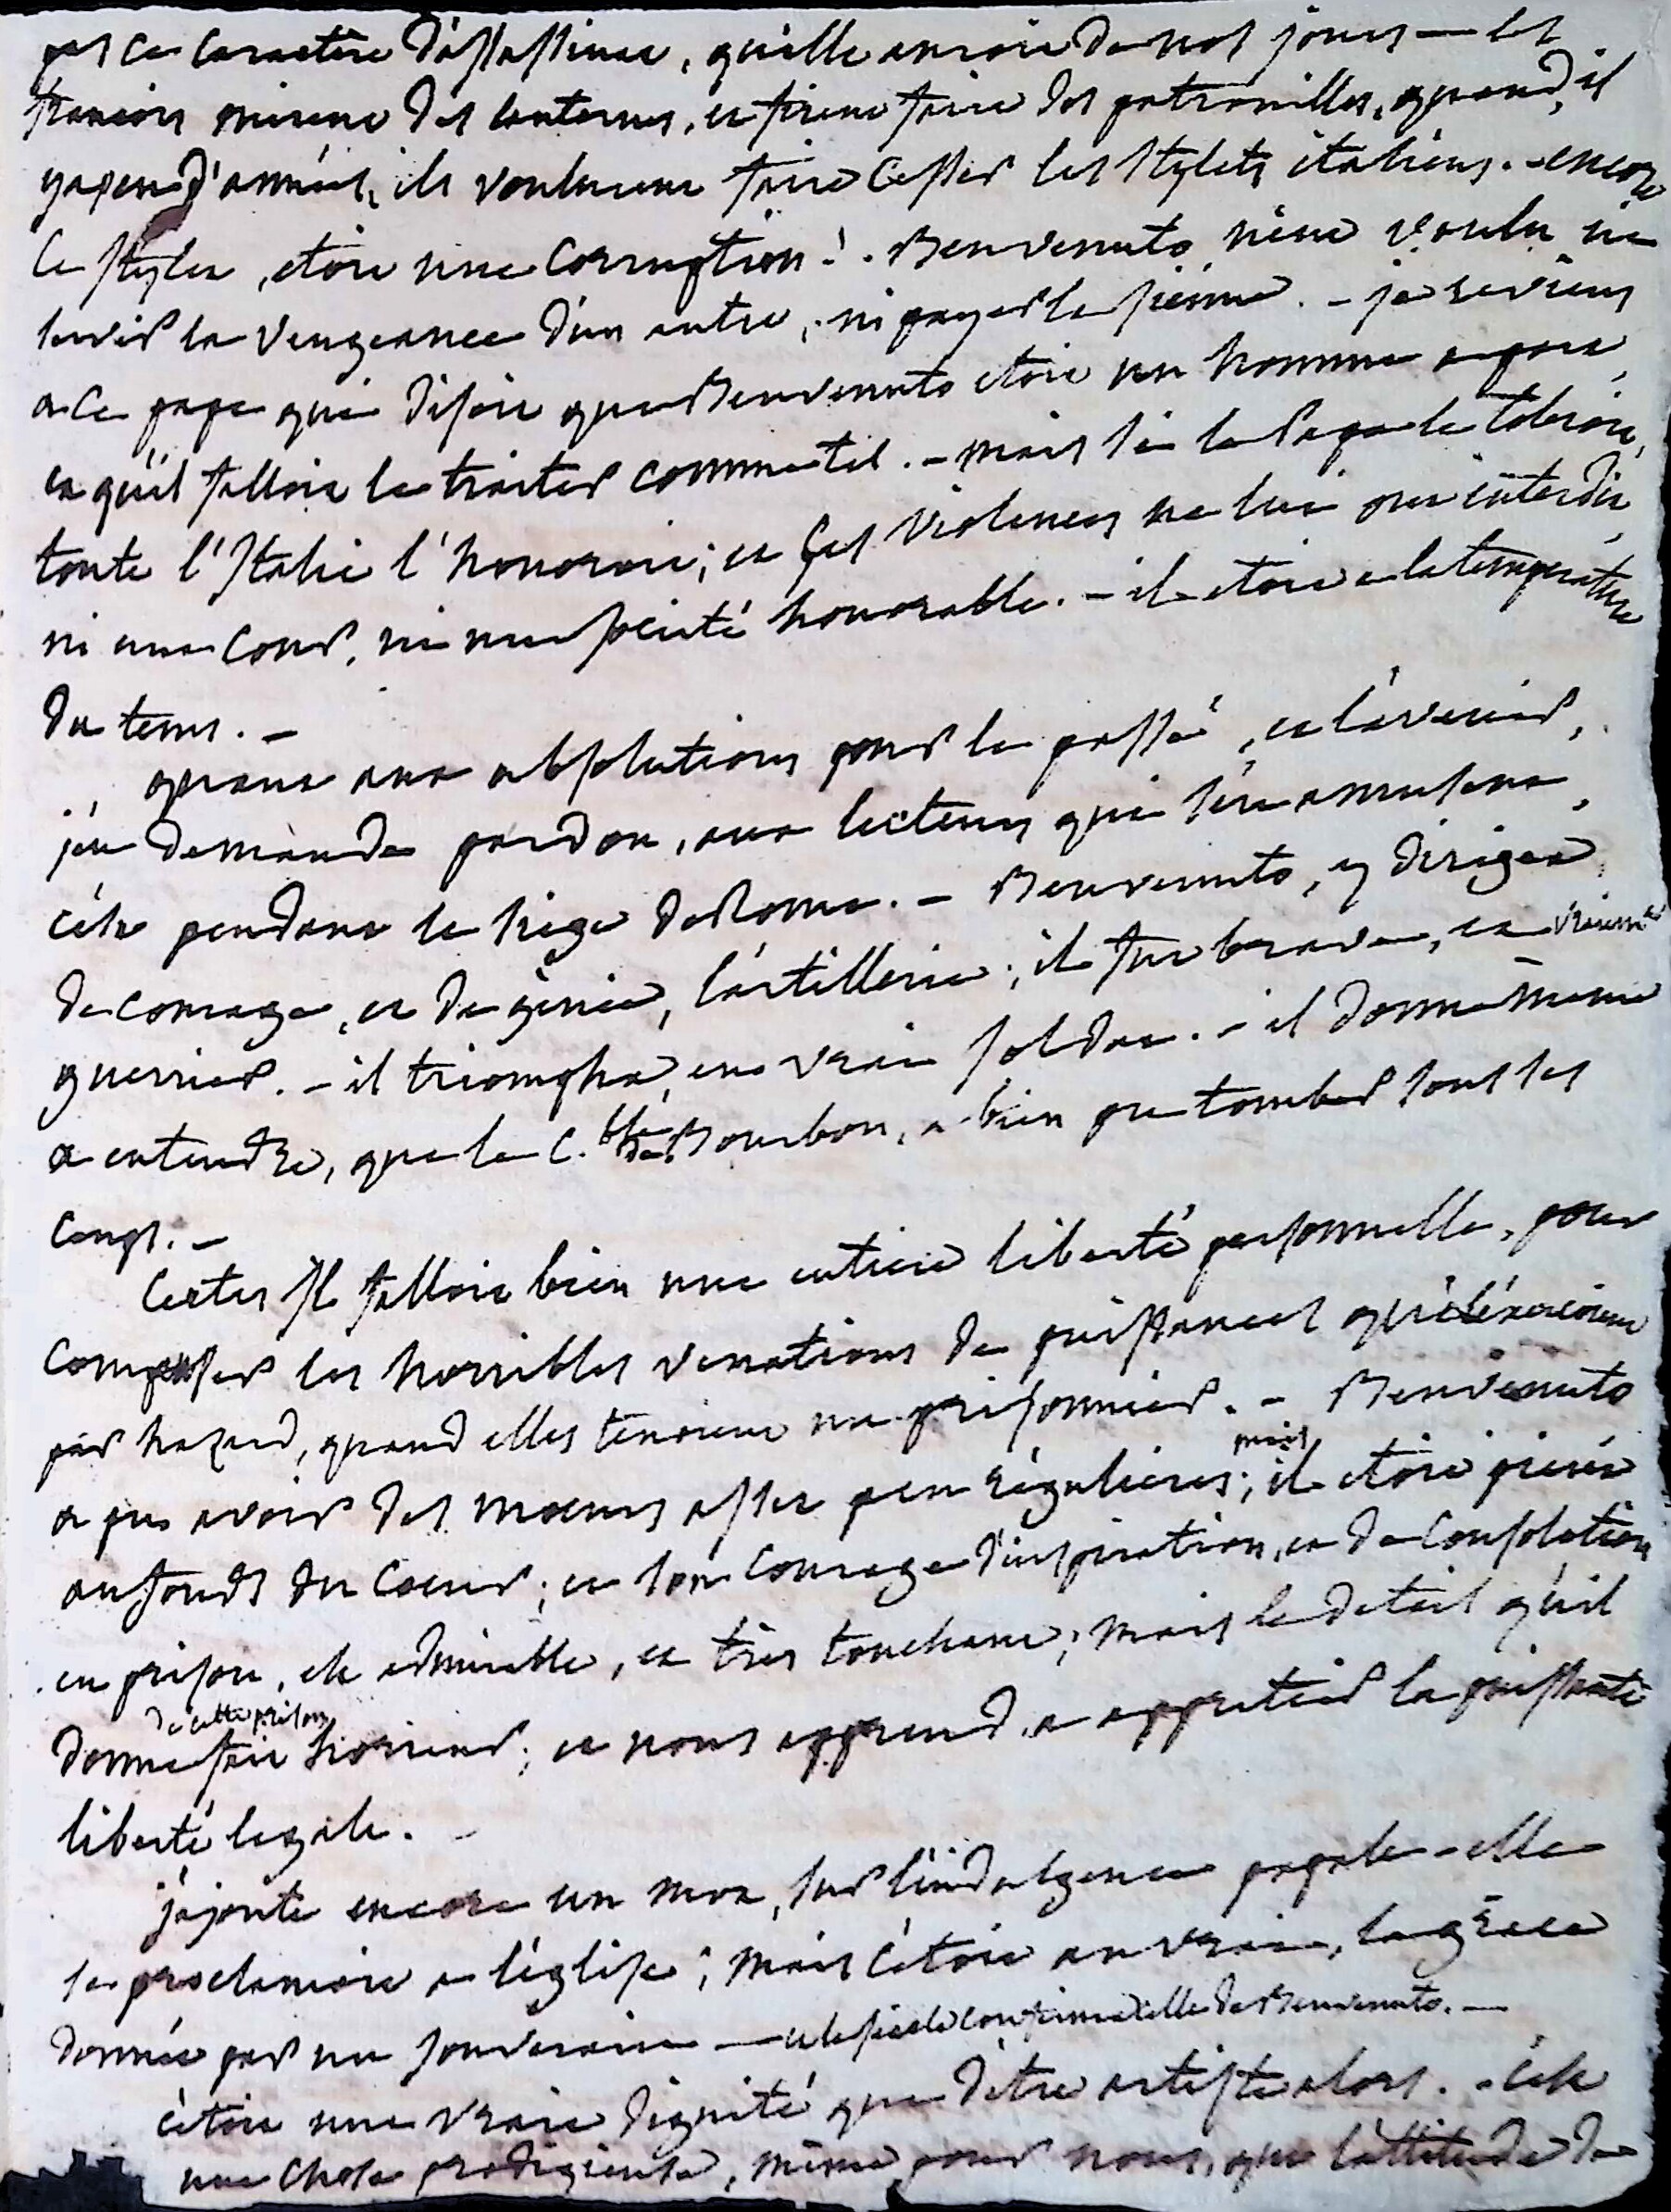 pas ce caractère d'assassinat, qu'elle auroit de nos jours — les
françois mirent des lanternes, et firent faire des patrouilles, quand, il
y a peu d'années, ils voulurent faire cesser les stylets italiens. - encore
le stylet, etoit une corruption! . Benvenuto n'eut voulu ni
servir la vengeance d'un autre, ni payer la sienne. - je reviens
a ce pape qui disoit que Benvenuto etoit un homme a part,
et qu'il falloit le traiter comme tel. - mais si le Pape le toleroit,
toute l'Italie l'honoroit; et ses violences ne lui ont interdit,
ni une cour, ni une societé honorable. - il etoit a la température
du tems. -
quant aux absolutions pour le passé, et l'avenir,
j'en demande pardon, aux lecteurs qui s'en amusent,
c'est pendant le siege de Rome. - Benvenuto, y dirigea
de courage, et de génie, l'artillerie; il fut brave, et vraiment
guerrier. - il triompha, en vrai soldat. - il donne même
a entendre, que le C.ble de Bourbon, a bien pu tomber sous ses
coups. -
Certes Il falloit bien une entiere liberté personnelle, pour
compenser les horribles vexations de puissances qui s'exercoient
par hazard, quand elles tenoient un prisonnier. - Benvenuto
a pu avoir des moeurs assez peu régulieres; mais il etoit pieux
au fonds du coeur; et son courage d'inspiration, et de consolation
en prison, est admirable, et très touchant; mais le detail qu'il
donne de cette prison fait horreur; et nous apprend a apprecier la puissante
liberté legale. -
j'ajoute encore un mot, sur l'indulgence papale - elle
se proclamoit a l'église; mais c'etoit au vrai, la grâce
donnée par un souverain — et le siecle confirma celle de Benvenuto. —
c'etoit une vraie dignité que d'être artiste alors. - c'est
une chose prodigieuse, même pour nous, que l'attitude de